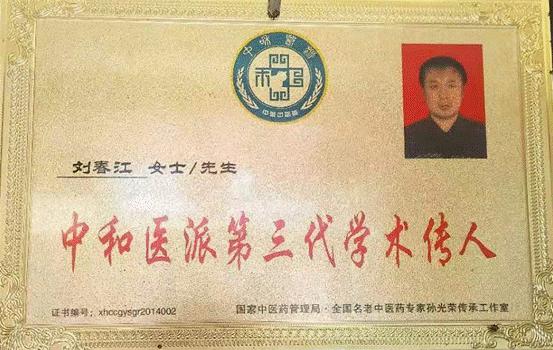 中和医派
刘春江 女士/先生
中和医派第三代学术传人
证书编号:xhccgysgr2014002
国家中医药管理局·全国名老中医药专家孙光荣传承工作室